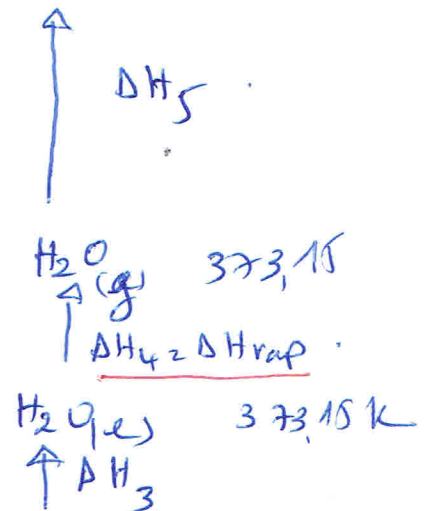 ΔH5
H2O(g) 373,15
ΔH4 = ΔHvap
H2O(l) 373,15 K
ΔH3